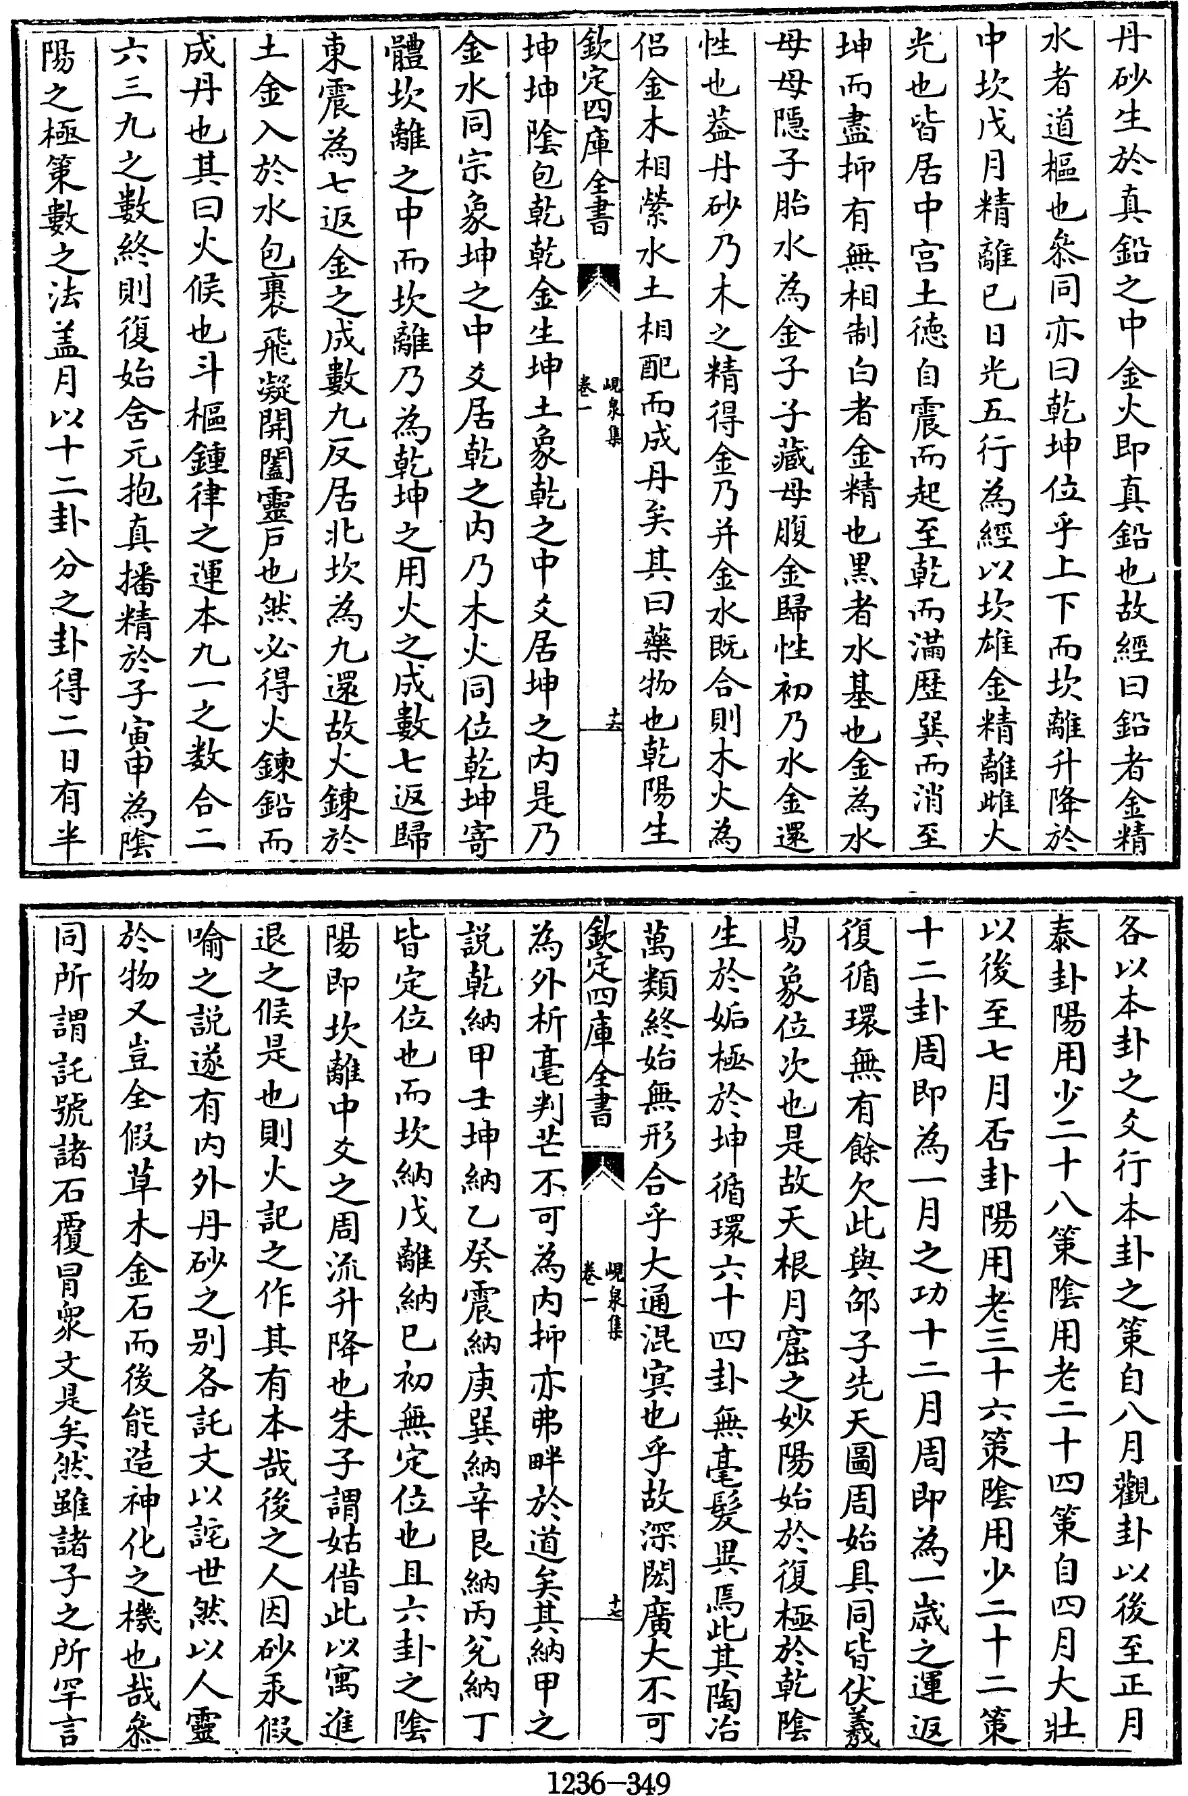 丹砂生於真鉛之中金火即真鉛也故經曰鉛者金精
水者道樞也叅同亦曰乾坤位乎上下而坎離升降於
中坎戊月精離已日光五行為經以坎雄金精離雌火
光也皆居中宫土德自震而起至乾而滿歴巽而消至
坤而盡抑有無相制白者金精也黒者水基也金為水
母母隱子胎水為金子子藏母腹金歸性初乃水金還
性也葢丹砂乃木之精得金乃并金水既合則木火為
侶金木相縈水土相配而成丹矣其曰藥物也乾陽生
欽定四庫全書
峴泉集
卷一
十六
坤坤陰包乾乾金生坤土象乾之中爻居坤之内是乃
金水同宗象坤之中爻居乾之内乃木火同位乾坤寄
體坎離之中而坎離乃為乾坤之用火之成數七返歸
東震為七返金之成數九反居北坎為九還故火鍊於
土金入於水包裹飛凝開闔靈戸也然必得火鍊鉛而
成丹也其曰火候也斗樞鍾律之運本九一之数合二
六三九之數終則復始含元抱真播精於子寅申為陰
陽之極策數之法盖月以十二卦分之卦得二日有半
各以本卦之爻行本卦之策自八月觀卦以後至正月
泰卦陽用少二十八策陰用老二十四策自四月大壯
以後至七月否卦陽用老三十六策陰用少二十二策
十二卦周即為一月之功十二月周即為一歳之運返
復循環無有餘欠此與邵子先天圖周始具同皆伏羲
易象位次也是故天根月窟之妙陽始於復極於乾陰
生於姤極於坤循環六十四卦無毫髮異焉此其陶冶
萬類終始無形合乎大通混冥也乎故深閎廣大不可
欽定四庫全書
峴泉集
卷一
十七
為外析毫判芒不可為内抑亦弗畔於道矣其納甲之
説乾納甲壬坤納乙癸震納庚巽納辛艮納丙兊納丁
皆定位也而坎納戊離納已初無定位也且六卦之陰
陽即坎離中爻之周流升降也朱子謂姑借此以寓進
退之候是也則火記之作其有本哉後之人因砂汞假
喻之説遂有内外丹砂之别各託文以詫世然以人靈
於物又豈全假草木金石而後能造神化之機也哉叅
同所謂託號諸石覆冒衆文是矣然雖諸子之所罕言
1236-349